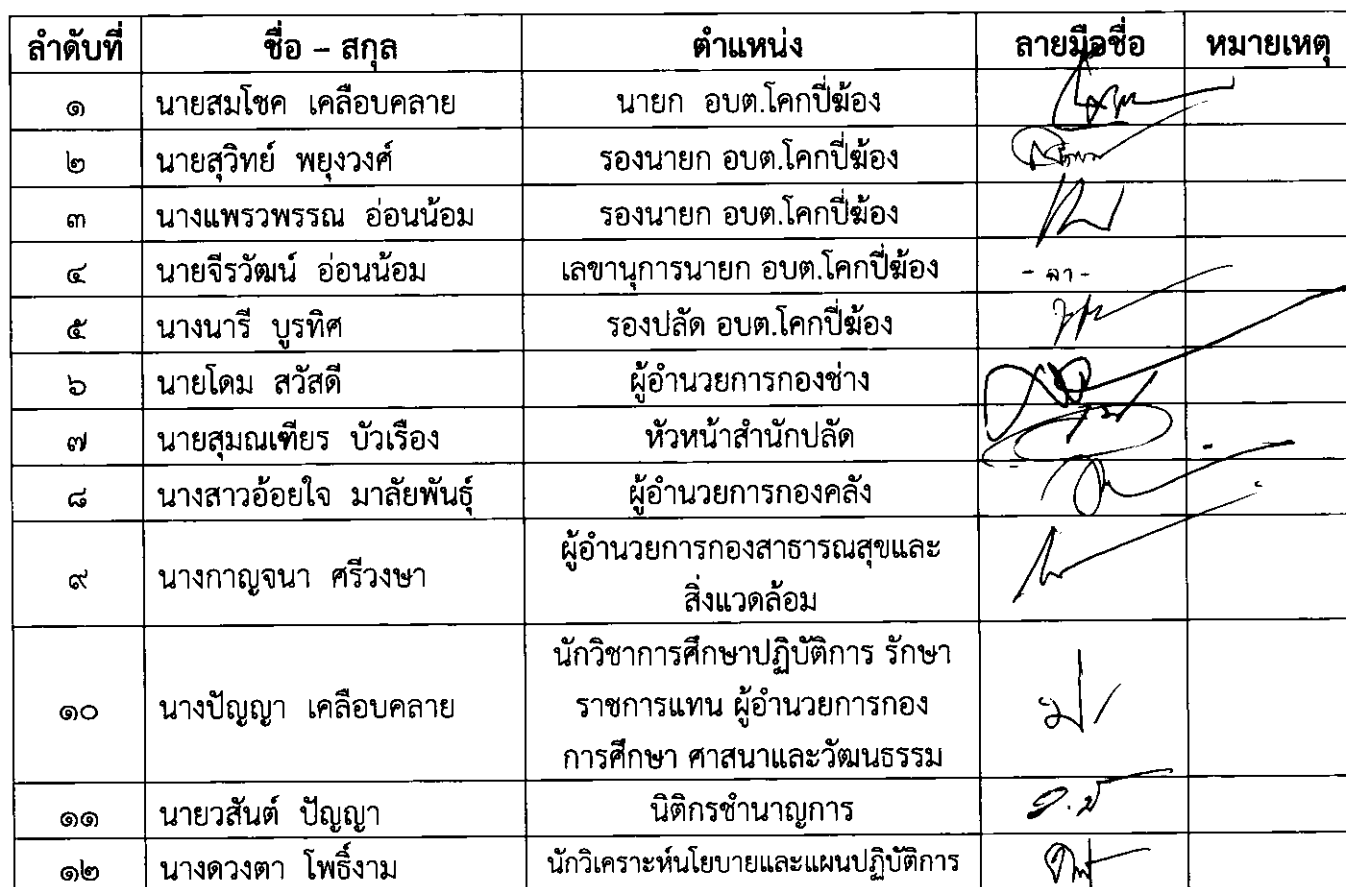 ลำดับที่ ชื่อ – สกุล ตำแหน่ง ลายมือชื่อ หมายเหตุ
๑ นายสมโชค เคลือบคลาย นายก อบต.โคกปี่ฆ้อง
๒ นายสุวิทย์ พยุงวงศ์ รองนายก อบต.โคกปี่ฆ้อง
๓ นางแพรวพรรณ อ่อนน้อม รองนายก อบต.โคกปี่ฆ้อง
๔ นายจีรวัฒน์ อ่อนน้อม เลขานุการนายก อบต.โคกปี่ฆ้อง - ลา -
๕ นางนารี บูรทิศ รองปลัด อบต.โคกปี่ฆ้อง
๖ นายโดม สวัสดี ผู้อำนวยการกองช่าง
๗ นายสุมณเฑียร บัวเรือง หัวหน้าสำนักปลัด
๘ นางสาวอ้อยใจ มาลัยพันธุ์ ผู้อำนวยการกองคลัง
๙ นางกาญจนา ศรีวงษา ผู้อำนวยการกองสาธารณสุขและ
สิ่งแวดล้อม
๑๐ นางปัญญา เคลือบคลาย นักวิชาการศึกษาปฏิบัติการ รักษา
ราชการแทน ผู้อำนวยการกอง
การศึกษา ศาสนาและวัฒนธรรม
๑๑ นายวสันต์ ปัญญา นิติกรชำนาญการ
๑๒ นางดวงตา โพธิ์งาม นักวิเคราะห์นโยบายและแผนปฏิบัติการ